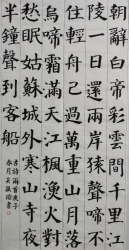 朝辭白帝彩雲間千里江
陵一日還兩岸猿聲啼不
住輕舟已過萬重山月落
烏啼霜滿天江楓漁火對
愁眠姑蘇城外寒山寺夜
半鐘聲到客船
古詩兩首庚子
春月吳書